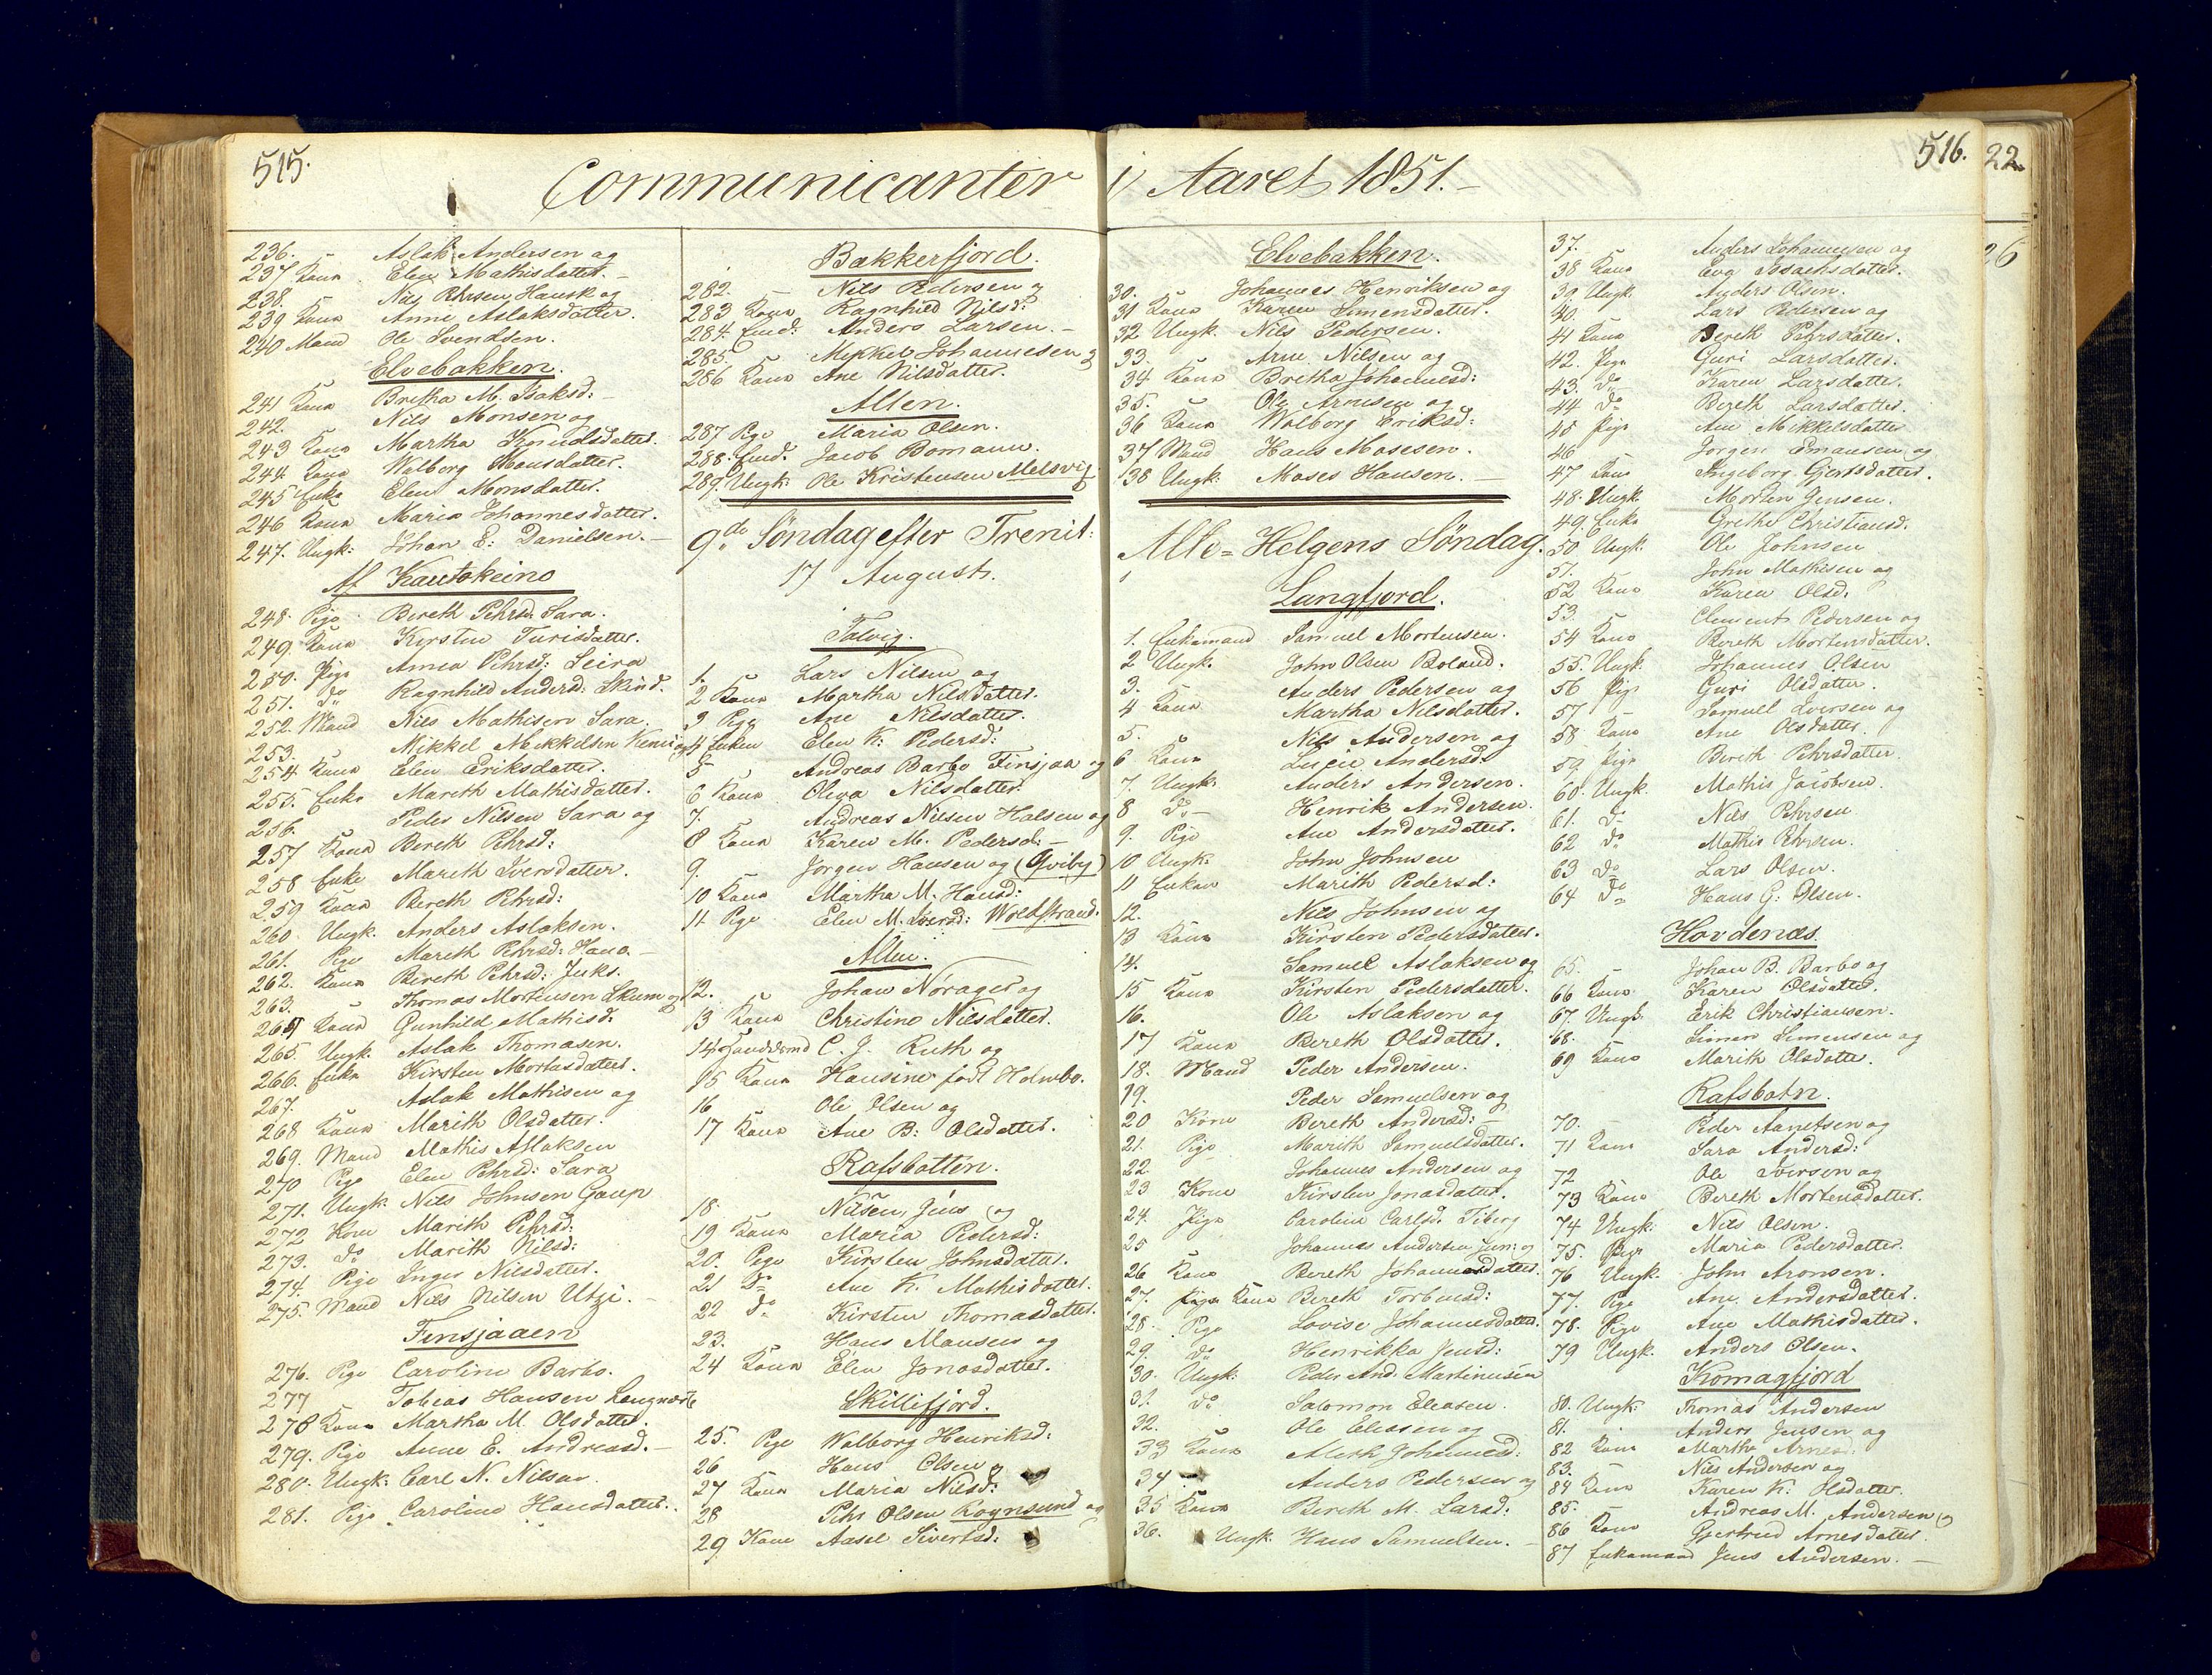 515.
Communicanter i Aaret 1851.
516.
22.
26
236. Aslak Andersen og
237 Kona Elen Mathisdatter.
238. Nils Pehrsen Hansk og
239 Kona Anne Aslaksdatter.
240 Mand Ole Svendsen.
Elvebakken.
241 Kona Bretha M. Isaksd:
242. Nils Monsen og
243 Kona Martha Knudsdatter.
244 Kona Walborg Monsdatter.
245 Enke Elen Monsdatter.
246 Kona Maria Johannesdatter.
247. Ungk: Johan E: Danielsen.
Af Kautokeino
248. Pige Bereth Pehrsd: Sara.
249. Kona Kirsten Turisdatter.
250. Pige Anna Pehrsd: Seira
251. do Ragnhild Andersd: Skind.
252. Mand Nils Mathisen Sara.
253. Mikkel Mikkelsen Kemi og
254 Kona Elen Eriksdatter.
255. Enke Mareth Mathisdatter.
256. Peder Nilsen Sara og
257 Kona Bereth Pehrsd:
258 Enke Mareth Iversdatter.
259 Kona Bereth Pehrsd:
260. Ungk. Anders Aslaksen.
261. Pige Mareth Pehrsd: Hana.
262. Kona Bereth Pehrsd: Juks.
263. Thomas Mortensen Skum og
264 Kona Gunhild Mathisd.
265. Ungk. Aslak Thomasen.
266. Enke Kirsten Mortasdatter.
267. Aslak Mathisen og
268 Kona Marith Olsdatter.
269. Mand Mathis Aslaksen
270 Pige Elen Pehrsd: Sara
271. Ungk. Nils Johnsen Gaup
272 Kone Marith Pehrsd:
273. do Marith Nilsd:
274. Pige Inger Nilsdatter.
275. Mand Nils Nilsen Utzi.
Finsjaaen
276. Pige Caroline Barbo.
277 Tobias Hansen Langnæs
278 Kona Martha M. Olsdatter.
279. Pige Anne E. Andreasd.
280. Ungk: Carl N. Nilsen.
281. Pige Caroline Hansdatter.
Bakkerfjord.
282. Nils Pedersen og
283 Kona Ragnhild Nilsd:
284. Enkd: Anders Larsen.
285. Mikkel Johannesen og
286 Kona Ane Nilsdatter.
Alten.
287 Pige Maria Olsen.
288. Enkd. Jacob Bomann.
289. Ungk: Ole Kristensen Melsvig.
9de Søndag efter Trenit:
17 August.
Talvig.
1. Lars Nilsen og
2 Kona Martha Nilsdatter.
3 Pige Ane Nilsdatter.
4 Enken Elen K: Pedersd:
5 Andreas Barbo Finsjaa og
6 Kona Oleva Nilsdatter.
7. Andreas Nilsen Halsen og
8 Kona Karen M. Pedersd:
9. Jørgen Hansen og (Qviby)
10 Kona Martha M. Hansd:
11 Pige Elen M. Iversd: Woldstrand.
Alten.
12. Johan Nørager og
13 Kona Christine Nilsdatter.
14 C. J. Ruth og
15 Kona Hansine født Holmbo.
16 Ole Olsen og
17 Kona Ane B: Olsdatter.
Rafsbotten.
18. Nilsen, Jens og
19 Kona Maria Pedersd:
20. Pige Kirsten Johnsdatter.
21 Do Ane K. Mathisdatter.
22 do Kirsten Thomasdatter.
23. Hans Monsen og
24 Kona Elen Jonasdatter.
Skillifjord.
25. Pige Walborg Henriksd:
26 Hans Olsen og
27 Kona Maria Nilsd:
28 Pehr Olsen Rognsund og
29 Kone Aasel Sivertsd:
Elvebakken.
30. Johannes Henriksen og
31 Kona Karen Simensdatter.
32 Ungk. Nils Pedersen.
33. Arne Nilsen og
34 Kona Bretha Johannesd:
35. Ole Arnesen og
36 Kona Walborg Eriksd:
37 Mand Hans Mosesen.
38 Ungk. Moses Hansen.
Alle=Helgens Søndag.
Langfjord.
1. Enkemand Samuel Mortensen.
2 Ungk. John Olsen Bolsud.
3. Anders Pedersen og
4 Kona Martha Nilsdatter.
5. Nils Andersen og
6 Kona Lucie Andersd:
7. Ungk. Anders Andersen.
8 Do Henrik Andersen.
9. Pige Ane Andersdatter.
10 Ungk. John Johnsen
11 Enken Marith Pedersd:
12. Nils Johnsen og
13 Kona Kirsten Pedersdatter.
14. Samuel Aslaksen og
15 Kona Kirsten Pedersdatter.
16. Ole Aslaksen og
17 Kona Bereth Olsdatter.
18. Mand Peder Andersen.
19. Peder Samuelsen og
20 Kone Bereth Andersd:
21. Pige Marith Samuelsdatter.
22. Johannes Andersen og
23 Kone Kirsten Jonasdatter.
24. Pige Caroline Carlsd. Tiberg
25 Johannes Andersen Jun: og
26 Kona Bereth Johannesdatter.
27. Kona Bereth Torbensd:
28. Pige Lovise Johannesdatter.
29. do Henrikka Jensd:
30. Ungk. Peder And. Martinusen
31. do Salomon Eleasen.
32. Ole Eleasen og
33 Kona Aleth Johannesd:
34. Anders Pedersen og
35 Kona Bereth M. Larsd:
36. Ungk. Hans Samuelsen.
37. Anders Johannesen og
38 Kona Eva Isachsdatter.
39. Ungk. Anders Olsen.
40. Lars Pedersen og
41 Kona Bereth Pehrsdatter.
42. Pige Guri Larsdatter.
43. do Karen Larsdatter.
44 do Bereth Larsdatter.
45 Pige Ane Mikkelsdatter
46 Jørgen Emansen og
47 Kona Ingeborg Gjertsdatter.
48. Ungk. Morten Jensen.
49. Enke Grethe Christiansd.
50 Ungk. Ole Johnsen
51. John Mathisen og
52 Kona Karen Olsd:
53. Clement Pedersen og
54 Kone Bereth Mortensdatter.
55. Ungk. Johannes Olsen
56 Pige Guri Olsdatter.
57 Samuel Iversen og
58 Kona Ane Olsdatter.
59 Pige Bereth Pehrsdatter.
60. Ungk. Mathis Jacobsen.
61. do Nils Pehrsen
62 do Mathis Pehrsen.
63 Do Lars Olsen.
64 Do Hans G: Olsen.
Hovdenæs.
65. Johan B. Barbo og
66 Kona Karen Olsdatter.
67. Ungk. Erik Christiansen.
68. Simen Simensen og
69 Kona Marith Olsdatter.
Rafsbotn.
70. Peder Aanetsen og
71 Kona Sara Andersd:
72 Ole Iversen og
73 Kona Bereth Mortensdatter.
74 Ungk. Nils Olsen.
75. Pige Maria Pedersdatter.
76 Ungk. John Aronsen.
77. Pige Ane Andersdatter.
78. Pige Ane Mathisdatter.
79 Ungk. Anders Olsen.
Komagfjord
80. Ungk. Thomas Andersen
81. Anders Jensen og
82 Kona Martha Arnesd.
83. Nils Andersen og
84 Kona Karen K. Olsdatter.
85. Andreas M. Andersen og
86 Kona Gjertrud Arnesdatter.
87 Enkemand Jens Andersen.